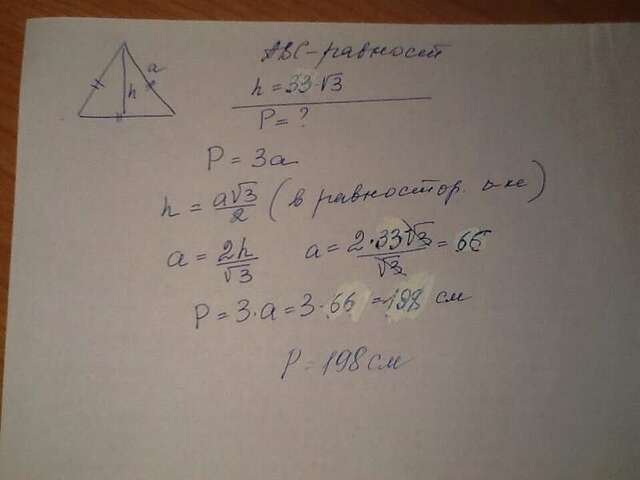 a
h
ABC - равност
h = 33·√3
P = ?
P = 3a
h = a√3/2 (в равностор. ∆-ке)
a = 2h/√3 a = 2·33√3/√3 = 66
P = 3·a = 3·66 = 198 см
P = 198 см